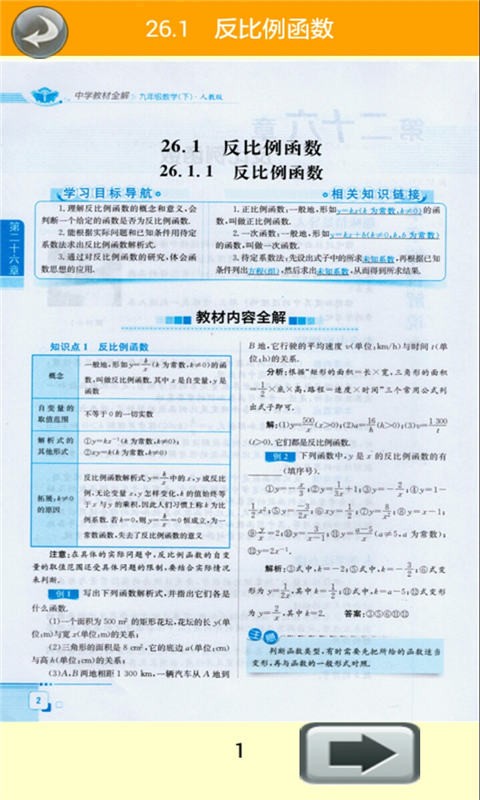 26.1 反比例函数
中学教材全解 九年级数学(下)·人教版
26.1 反比例函数
26.1.1 反比例函数
学习目标导航
1.理解反比例函数的概念和意义,会
判断一个给定的函数是否为反比例函数.
2.能根据实际问题和已知条件用待定
系数法求出反比例函数解析式.
3.通过对反比例函数的研究,体会函
数思想的应用.
相关知识链接
1.正比例函数:一般地,形如y=kx(k为常数,k≠0)的函
数,叫做正比例函数.
2.一次函数:一般地,形如y=kx+b(k≠0,k,b为常数)
的函数,叫做一次函数.
3.待定系数法:先设出式子中的所求未知系数,再根据已知
条件列出方程(组),然后求出未知系数,从而得到所求结果.
第二十六章
教材内容全解
知识点1 反比例函数
概念
一般地,形如y=k/x(k为常数,k≠0)的函
数,叫做反比例函数.其中x是自变量,y是
函数
自变量的
取值范围
不等于0的一切实数
解析式的
其他形式
①y=kx⁻¹(k为常数,k≠0);
②xy=k(k为常数,k≠0)
拓展:k≠0
的原因
反比例函数解析式y=k/x中的x,y成反比
例,无论变量x,y怎样变化,k的值始终等
于x与y的乘积,因此人们习惯上称k为比
例系数.若k=0,则y=k/x=0恒成立,为一
常数函数,失去了反比例函数的意义
注意:在具体的实际问题中,反比例函数的自变
量的取值范围还受具体问题的限制,要结合实际情况
来判断.
例1 写出下列函数解析式,并指出它们各是
什么函数.
(1)一个面积为500 m²的矩形花坛,花坛的长y(单
位:m)与宽x(单位:m)的关系;
(2)三角形的面积是8 cm²,它的底边a(单位:cm)
与高h(单位:cm)的关系;
(3)A,B两地相距1 300 km,一辆汽车从A地到
B地,它行驶的平均速度v(单位:km/h)与时间t(单
位:h)的关系.
分析:根据“矩形的面积=长×宽,三角形的面积
=1/2×底×高,路程=速度×时间”三个常用公式列
出式子即可.
解:(1)y=500/x(x>0);(2)a=16/h(h>0);(3)v=1 300/t
(t>0).它们都是反比例函数.
例2 下列函数中,y是x的反比例函数的有
(填序号).
①y=-x/3;②y=1/3x+1;③y=-2/x;④y=1-
⑧y=x-1;
=2;⑩y=
(a≠5,a为常数);
⑫y=2x⁻¹.
解析:③式中,k=-2;⑤式中,k=-3/2;⑥式变
答案:③⑤⑥⑪⑫
主题
判断函数类型,有时需要先把所给的函数适当
变形,再与函数的一般形式对照.
2
1